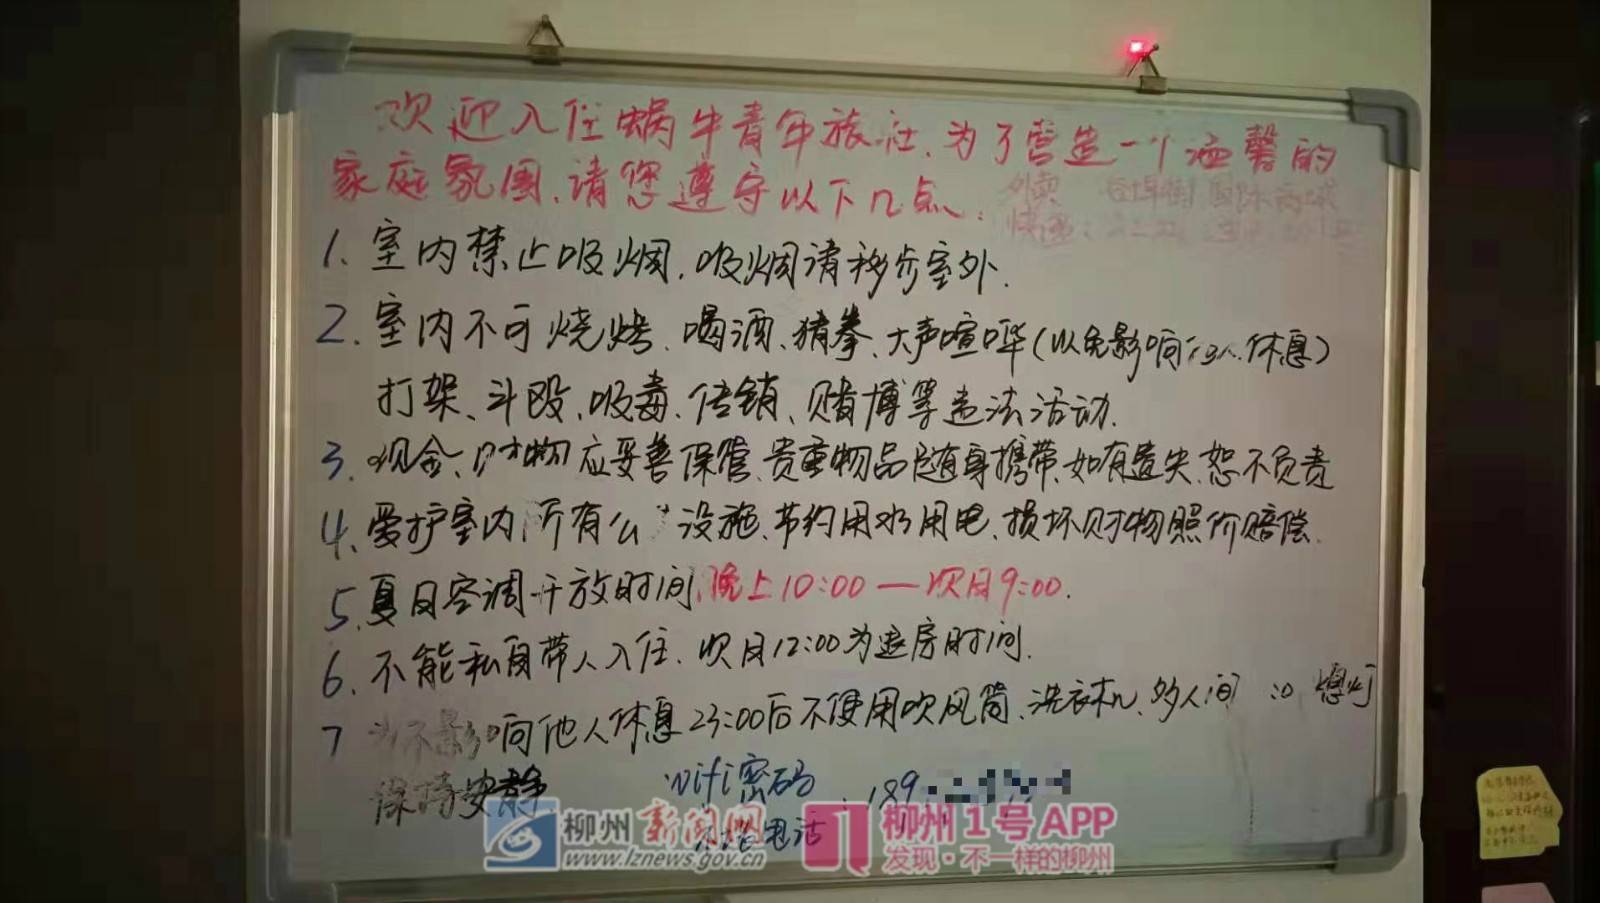 欢迎入住蜗牛青年旅社、为了营造一个温馨的
家庭氛围、请您遵守以下几点:
外卖
快递:
1. 室内禁止吸烟, 吸烟请移步室外.
2. 室内不可烧烤、喝酒、猜拳、大声喧哗(以免影响 休息)
打架、斗殴、吸毒、传销、赌博等违法活动.
3. 现金、财物应妥善保管、贵重物品随身携带、如有遗失、恕不负责
4. 爱护室内所有公 设施、节约用水用电、损坏财物照价赔偿.
5. 夏日空调开放时间, 晚上10:00—次日9:00.
6. 不能私自带人入住. 次日12:00为退房时间.
7 为不影响他人休息23:00后不使用吹风筒、洗衣机、多人间 :0 熄灯
保持安静 wifi密码 : 189
电话
柳州新闻网
www.lznews.gov.cn
柳州1号APP
发现·不一样的柳州